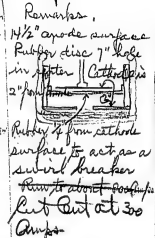 Remarks,
14½" anode surface
Rubber disc 7" hole
in center Cathode is
2" from Anode
Rubber 4 from cathode
surface to act as a
swirl breaker
Run to about 800 Amps
Cut Out at 300
Amps